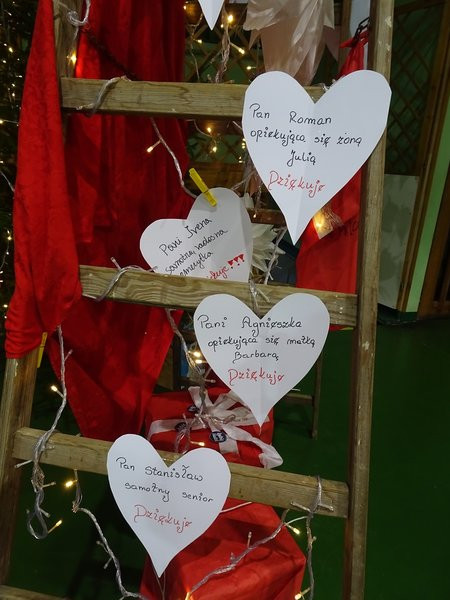 Pan Roman
opiekująca się żoną
Julią
Dziękuję
Pani Irena
samotna radosna
emerytka
Pani Agnieszka
opiekująca się matką
Barbarą
Dziękuję
Pan Stanisław
samotny senior
Dziękuję